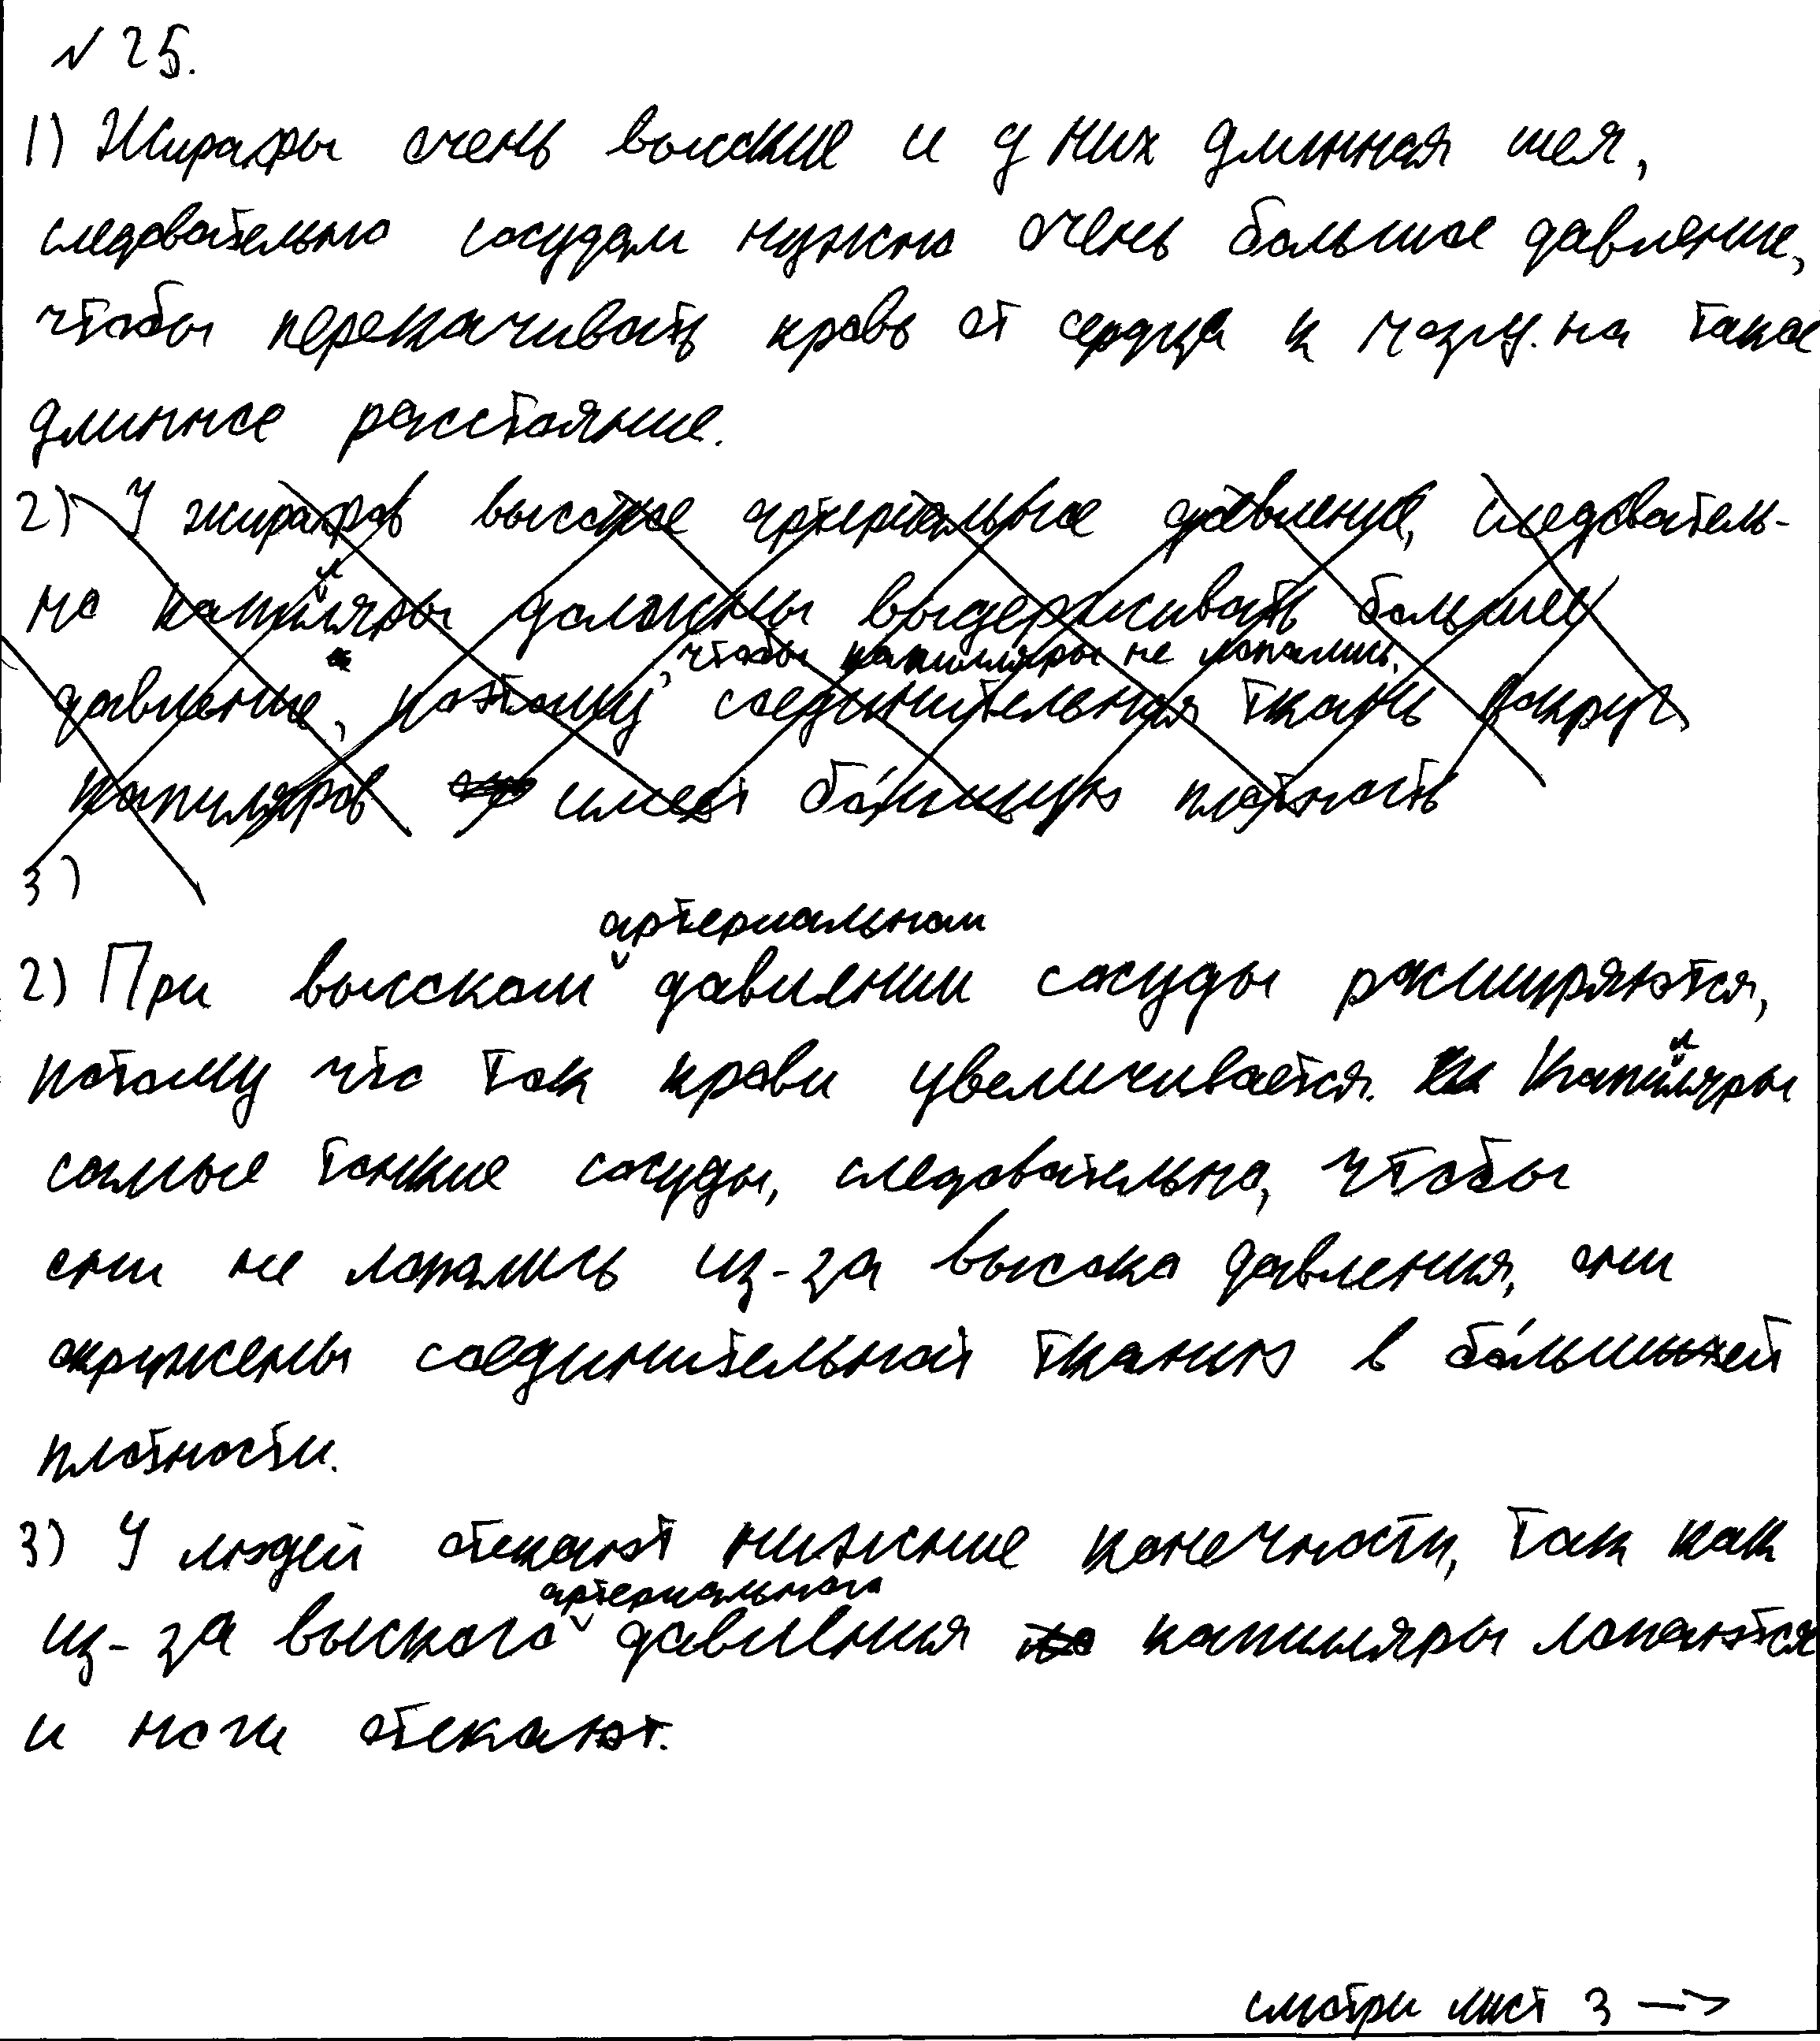 № 25.
1) Жирафы очень высокие и у них длинная шея,
следовательно сосудам нужно очень большое давление,
чтобы перекачивать кровь от сердца к мозгу на такое
длинное расстояние.
2) У жирафов высокое артериальное давление, следователь-
но капилляры должны выдерживать большее
чтобы капилляры не лопались,
давление, поэтому соединительная ткань вокруг
капиляров имеет бо́льшую плотность
3)
артериальном
2) При высоком давлении сосуды расширяются,
потому что ток крови увеличивается. Капилляры
самые тонкие сосуды, следовательно, чтобы
они не лопались из-за высока давления, они
окружены соединительной тканью в бо́льшей
плотности.
3) У людей отекают нижние конечности, так как
артериального
из-за высокого давления капилляры лопаются
и ноги отекают.
смотри лист 3 —>